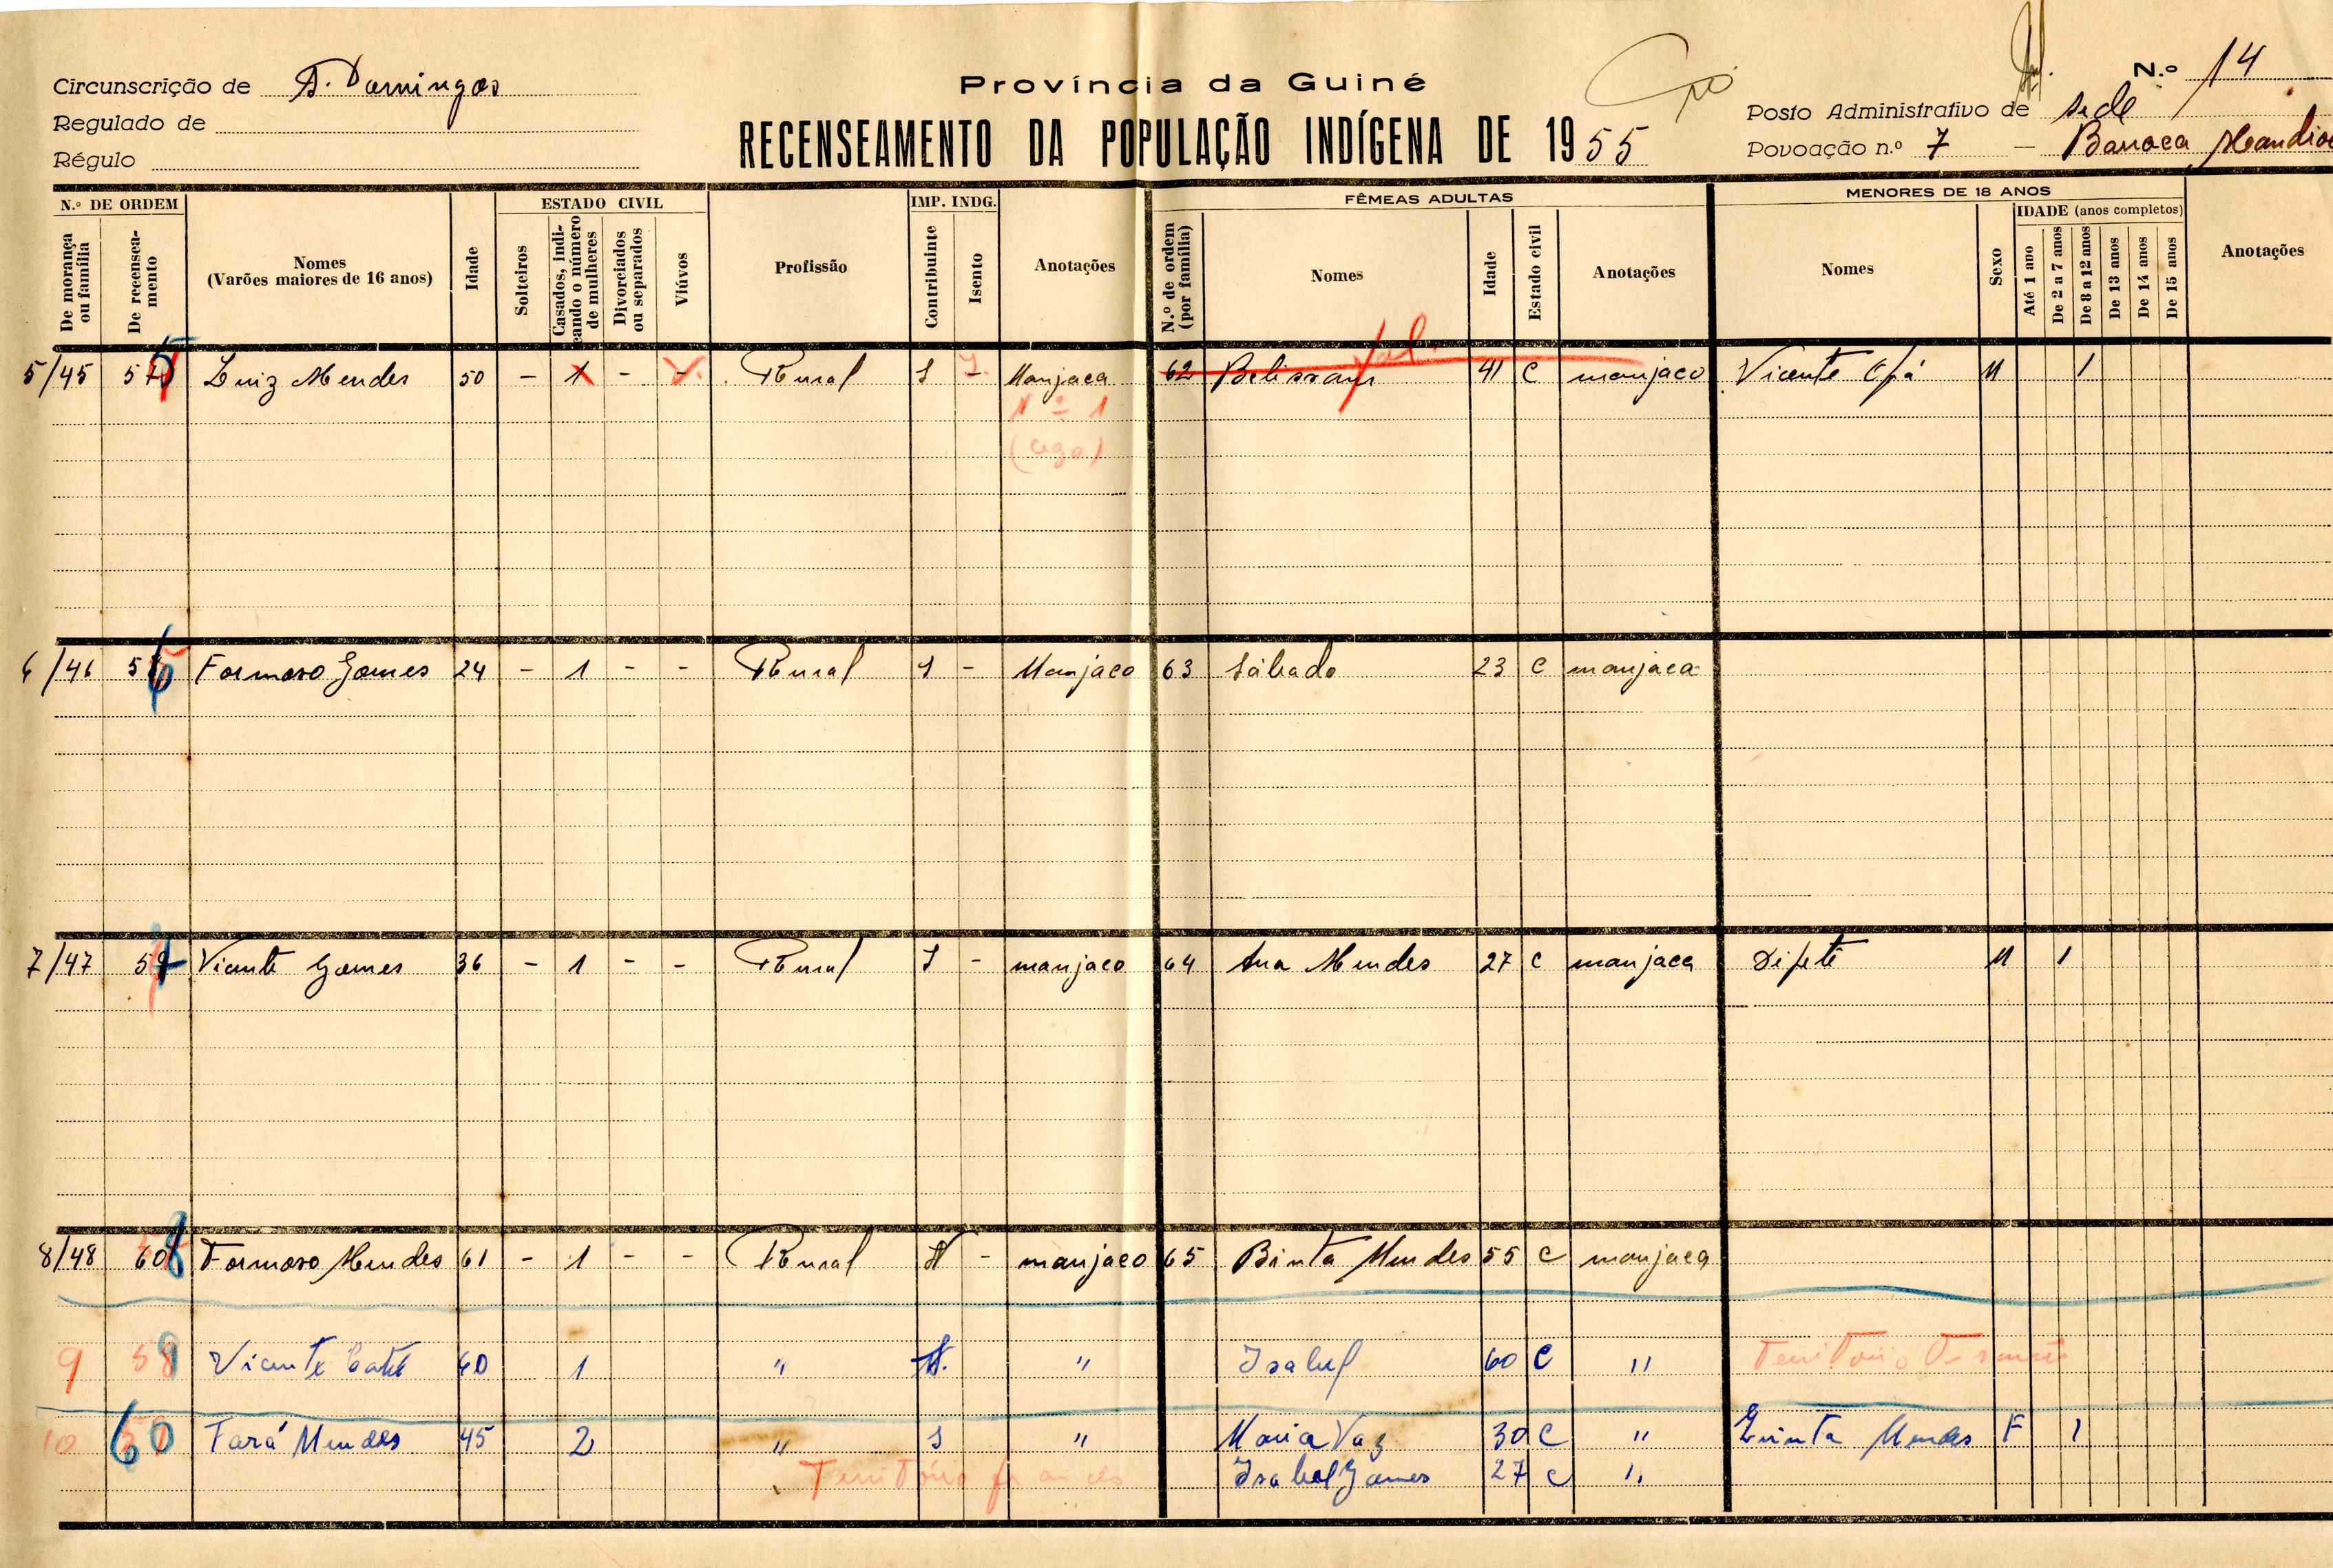 Circunscrição de S. Domingos
Província da Guiné
N.º 14
Regulado de
Posto Administrativo de sede
RECENSEAMENTO DA POPULAÇÃO INDÍGENA DE 1955
Régulo
Povoação n.º 7 —
N.º DE ORDEM
De morança ou família
De recenseamento
Nomes
(Varões maiores de 16 anos)
Idade
ESTADO CIVIL
Solteiros
Casados, indicando o número de mulheres
Divorciados ou separados
Viúvos
Profissão
IMP. INDG.
Contribuinte
Isento
Anotações
FÊMEAS ADULTAS
N.º de ordem (por família)
Nomes
Idade
Estado civil
Anotações
MENORES DE 18 ANOS
Nomes
Sexo
IDADE (anos completos)
Até 1 ano
De 2 a 7 anos
De 8 a 12 anos
De 13 anos
De 14 anos
De 15 anos
Anotações
5/45 Luiz Mendes 50 - 1 - - Rural 1 - Manjaca 62 41 C manjaco Vicente M 1
6/46 Formoso Gomes 24 - 1 - - Rural 1 - Manjaco 63 Sábado 23 C manjaca
7/47 Vicente Gomes 36 - 1 - - Rural 1 - manjaco 64 Ana Mendes 27 C manjaca M 1
8/48 Formoso Mendes 61 - 1 - - Rural - manjaco 65 Binta Mendes 55 C manjaca
9 Vicente 60 1 " " Isabel 60 C "
10 60 Fará Mendes 45 2 " 1 " Maria Vaz 30 C " Mendes F 1
Território francês Isabel Gomes 27 C "